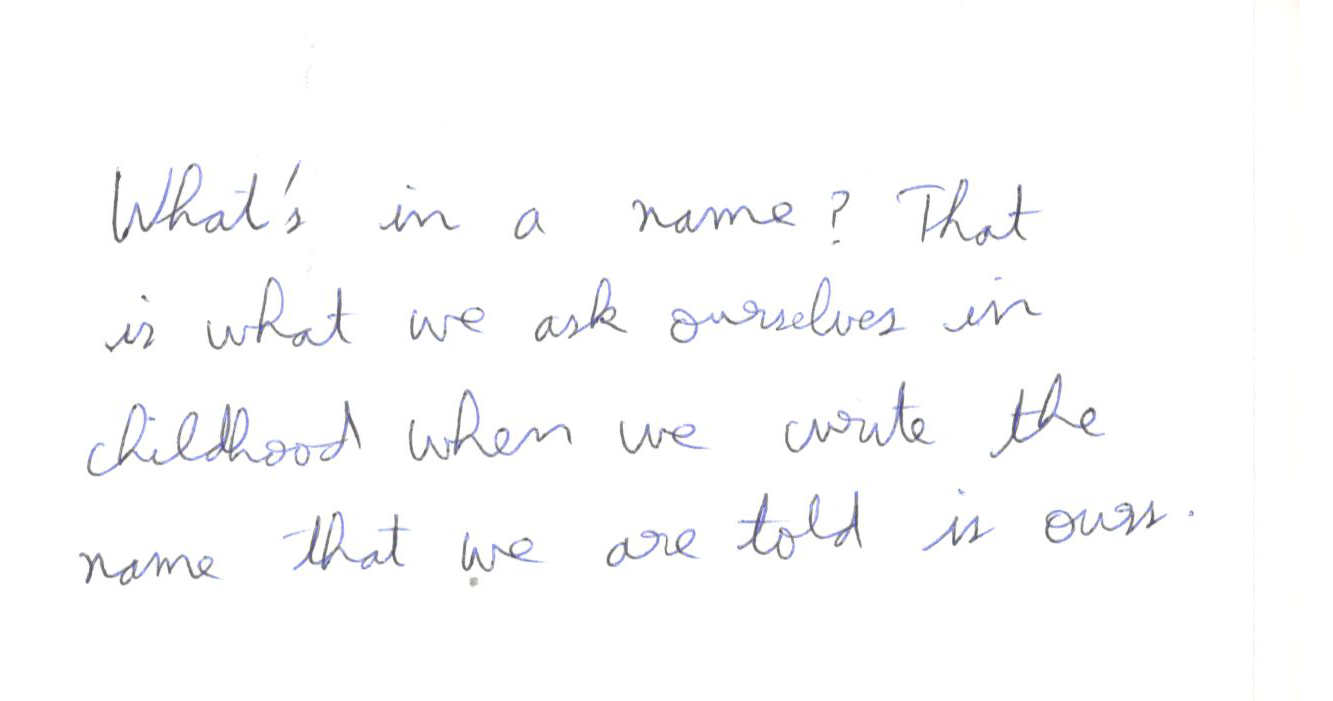 What's in a name? That
is what we ask ourselves in
childhood when we write the
name that we are told is ours.